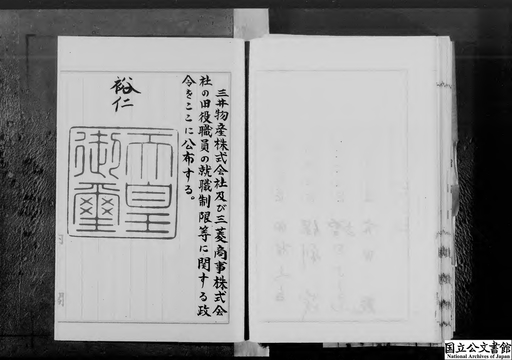 三井物産株式会社及び三菱商事株式会
社の旧役職員の就職制限等に関する政
令をここに公布する。
裕仁
天皇
御璽
国立公文書館
National Archives of Japan